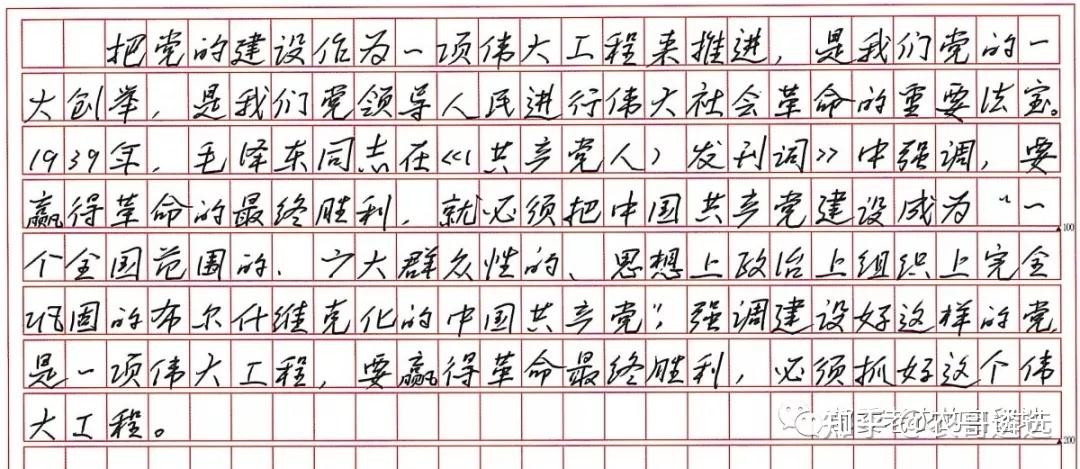 把党的建设作为一项伟大工程来推进，是我们党的一
大创举，是我们党领导人民进行伟大社会革命的重要法宝。
1939年，毛泽东同志在《〈共产党人〉发刊词》中强调，要
赢得革命的最终胜利，就必须把中国共产党建设成为“一
100
个全国范围的、广大群众性的、思想上政治上组织上完全
巩固的布尔什维克化的中国共产党”，强调建设好这样的党
是一项伟大工程，要赢得革命最终胜利，必须抓好这个伟
大工程。
知乎 @农哥遴选
200